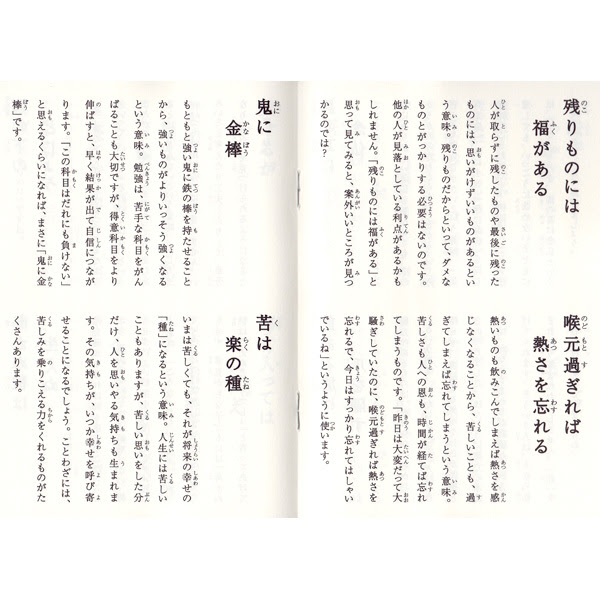 残りものには
福がある
人が取らずに残したものや最後に残った
ものには、思いがけずいいものがあるとい
う意味。残りものだからといって、ダメな
ものとがっかりする必要はないのです。
他の人が見落としている利点があるかも
しれません。「残りものには福がある」と
思って見てみると、案外いいところが見つ
かるのでは？
喉元過ぎれば
熱さを忘れる
熱いものも飲みこんでしまえば熱さを感
じなくなることから、苦しいことも、過
ぎてしまえば忘れてしまうという意味。
苦しさも人への恩も、時間が経てば忘れ
てしまうものです。「昨日は大変だって大
騒ぎしていたのに、喉元過ぎれば熱さを
忘れるで、今日はすっかり忘れてはしゃい
でいるね」というように使います。
鬼に
金棒
もともと強い鬼に鉄の棒を持たせること
から、強いものがよりいっそう強くなる
という意味。勉強は苦手な科目をがん
ばることも大切ですが、得意科目をより
伸ばすと、早く結果が出て自信につなが
ります。「この科目はだれにも負けない」
と思えるくらいになれば、まさに「鬼に金
棒」です。
苦は
楽の種
いまは苦しくても、それが将来の幸せの
「種」になるという意味。人生には苦しい
こともありますが、苦しい思いをした分
だけ、人を思いやる気持ちも生まれま
す。その気持ちが、いつか幸せを呼び寄
せることになるでしょう。ことわざには、
苦しみを乗りこえる力をくれるものがた
くさんあります。